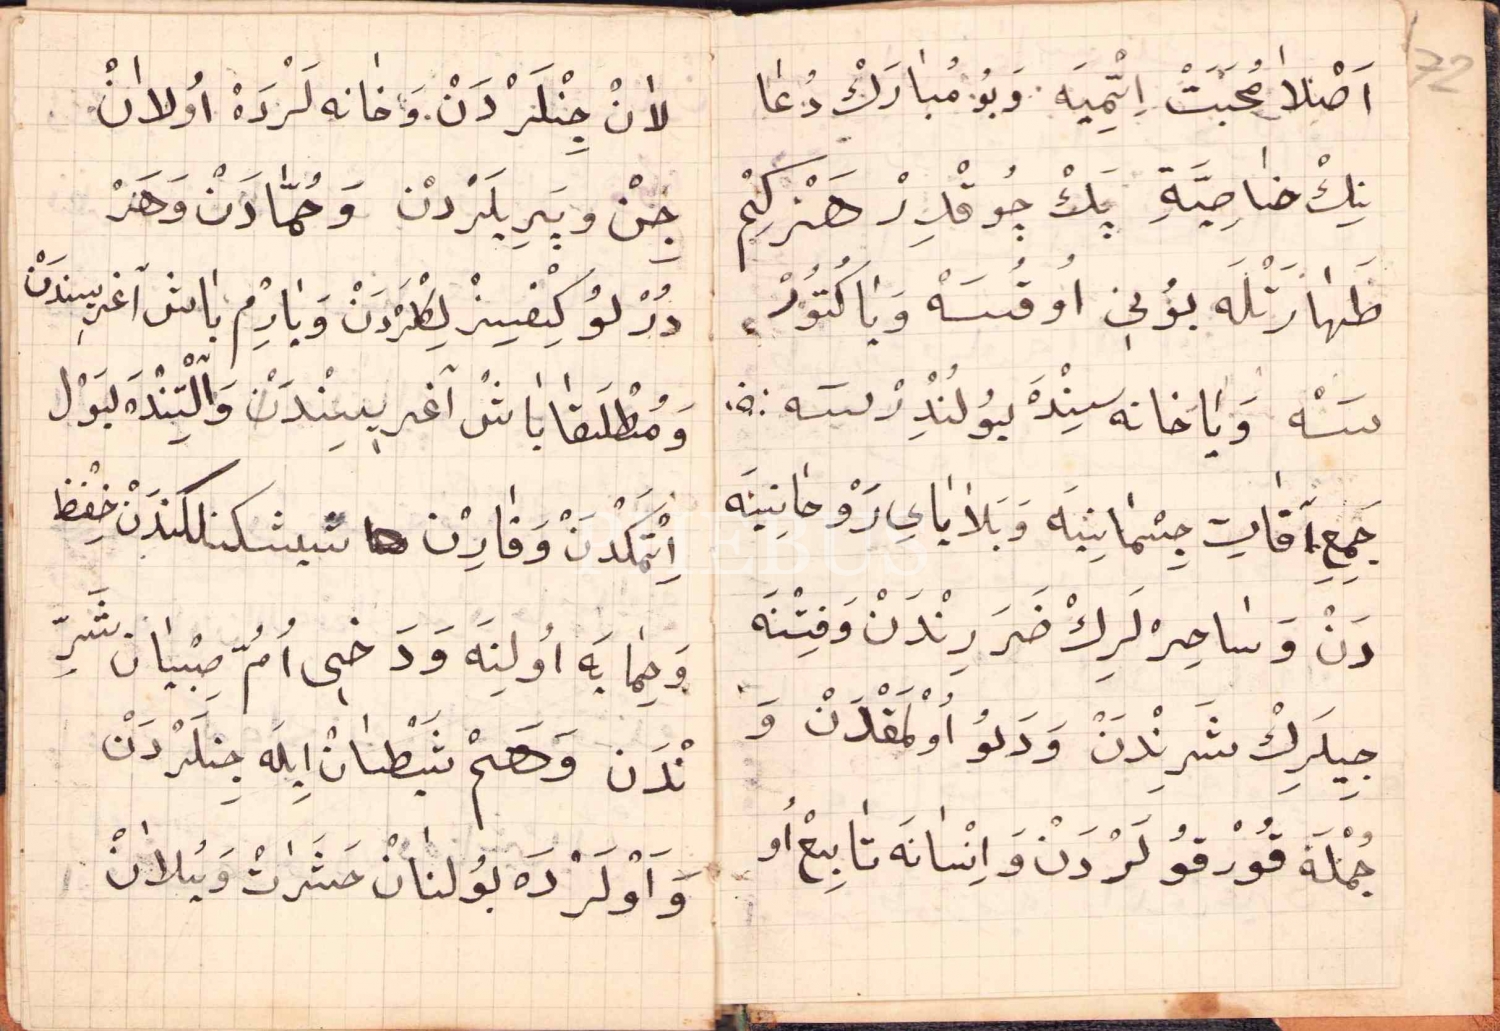 72
اَصْلاٰ مُحَبَّتْ اِتْمِيَه وَبُو مُبٰارَكْ دُعٰا
نِكْ خٰاصِيَّةِ پَكْ چُوقْدِرْ هَنْركِيْم
طَهٰارَتْلَه بُونِي اُوقُسَهْ وَيٰا كُتُوُرْ
سَهْ وَيٰا خٰانَه سِينْدَهْ بُولُنْدِرْسَه
جَمِعِ آفٰاتِ جِسْمٰانِيَه وَبَلاٰيٰايِ رَوْحٰانِيَه
دَنْ وَسٰاحِرْلَرِكْ ضَرَرِنْدَنْ وَفِتْنَه
جِيلَرِكْ شَرِنْدَنْ وَدَلُو اُوْلْمَقْدَنْ وَ
جُمْلَة قُوْرقُولَرْدَنْ وَاِنْسٰانَه تٰابِعْ اُو
لاٰنْ جِنْلَرْدَنْ وَخٰانَه لَرْدَهْ اُولاٰنْ
جِنْ وپَرِيلَرْدنْ وَحُمّٰادَنْ وَهَرْ
دُرْلُو كِيْفسِزْلِكْلَرْدَنْ وَيٰارِمْ بٰاشْ آغْرِيسِندَنْ
وَمُطْلَقٰا بٰاشْ آغرِيسِينْدَنْ وَآلْتِنْدَه بَوْل
اِتْمَكْدَنْ وَقٰارِنْ شيشكنللكندَنْ حِفْظ
وَحِمٰايَه اُولنَه وَدَخِى اُمُّ صِبْيٰان شَرِّ
نْدَن وَهَمْ شَيْطٰانْ اِيلَه جِنلَرْدَنْ
وَاَوْلَرْدَه بُولنٰانْ حَشَرٰاتْ وَيٖلاٰنْ